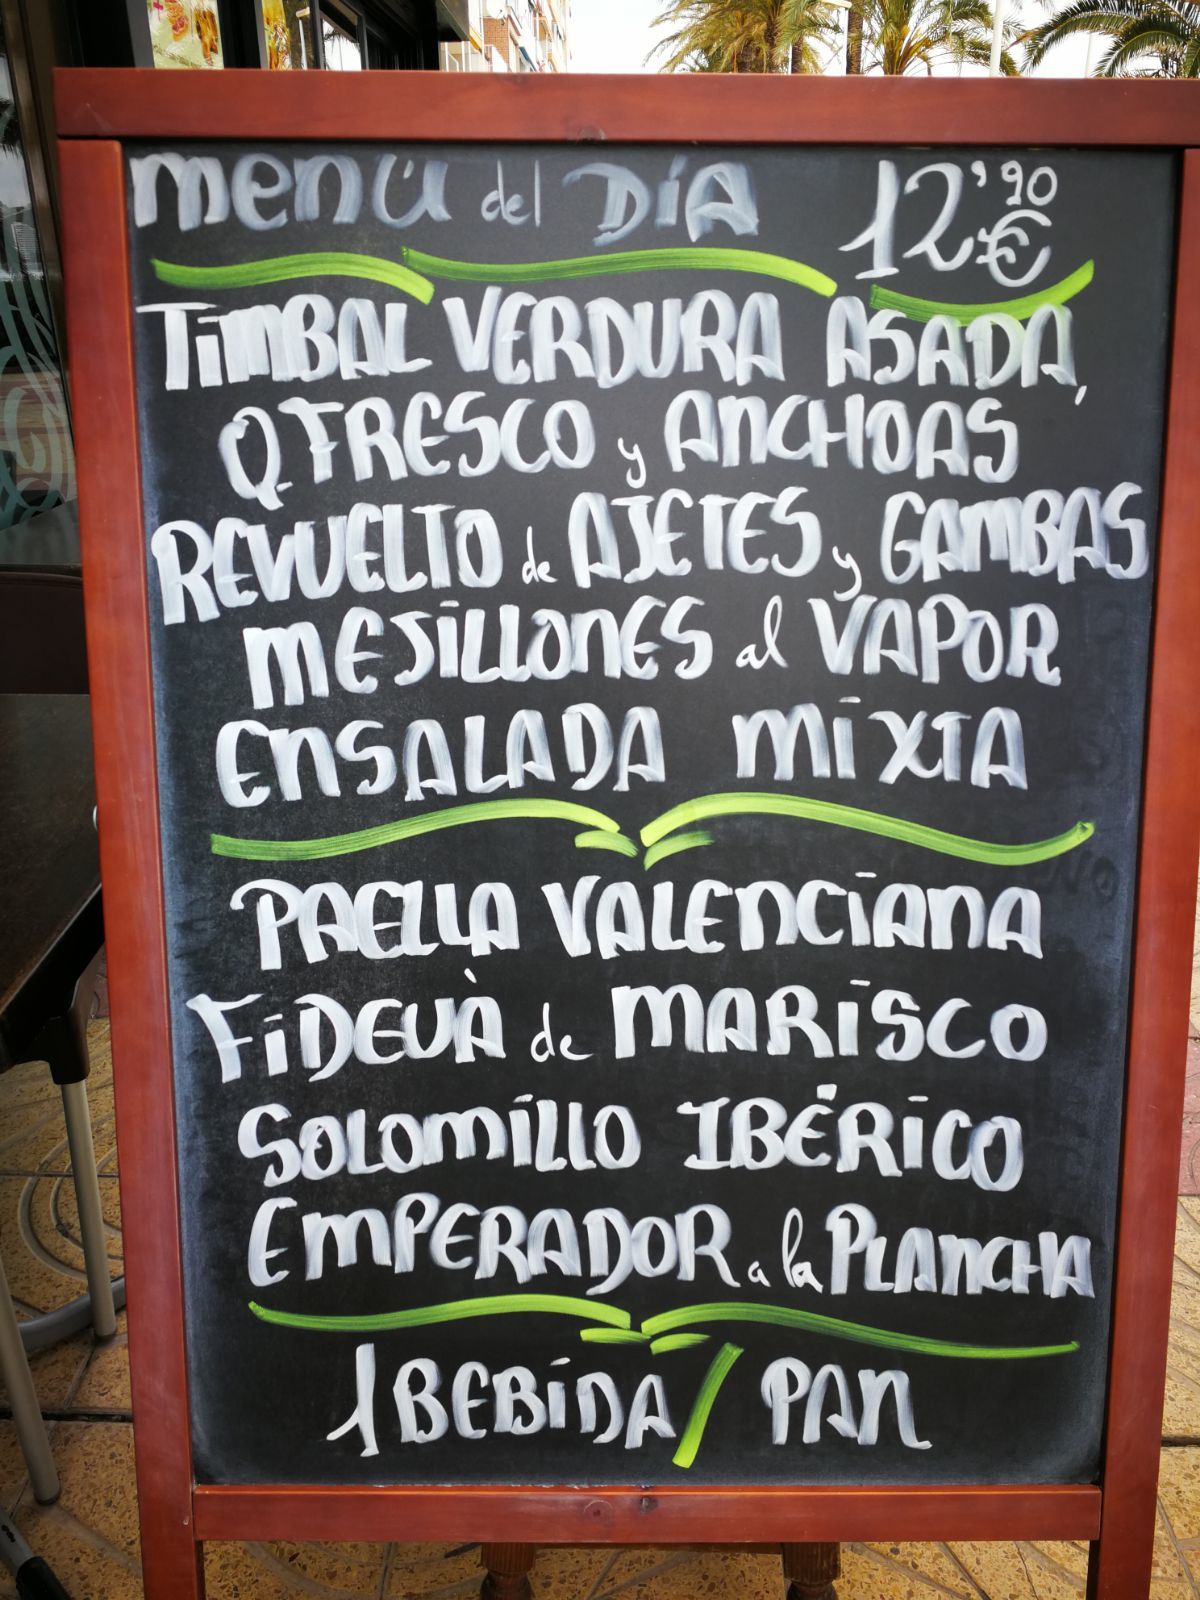 menú del Día 12'90 €
TiMBAL VERDURA ASADA,
Q.FRESCO y ANCHOAS
REVUELTO de AJETES y GAMBAS
MEJILLONES al VAPOR
ENSALADA MIXTA
PAELLA VALENCIANA
FIDEUÀ de MARISCO
SOLOMILLO IBÉRICO
EMPERADOR a la PLANCHA
1 BEBIDA / PAN